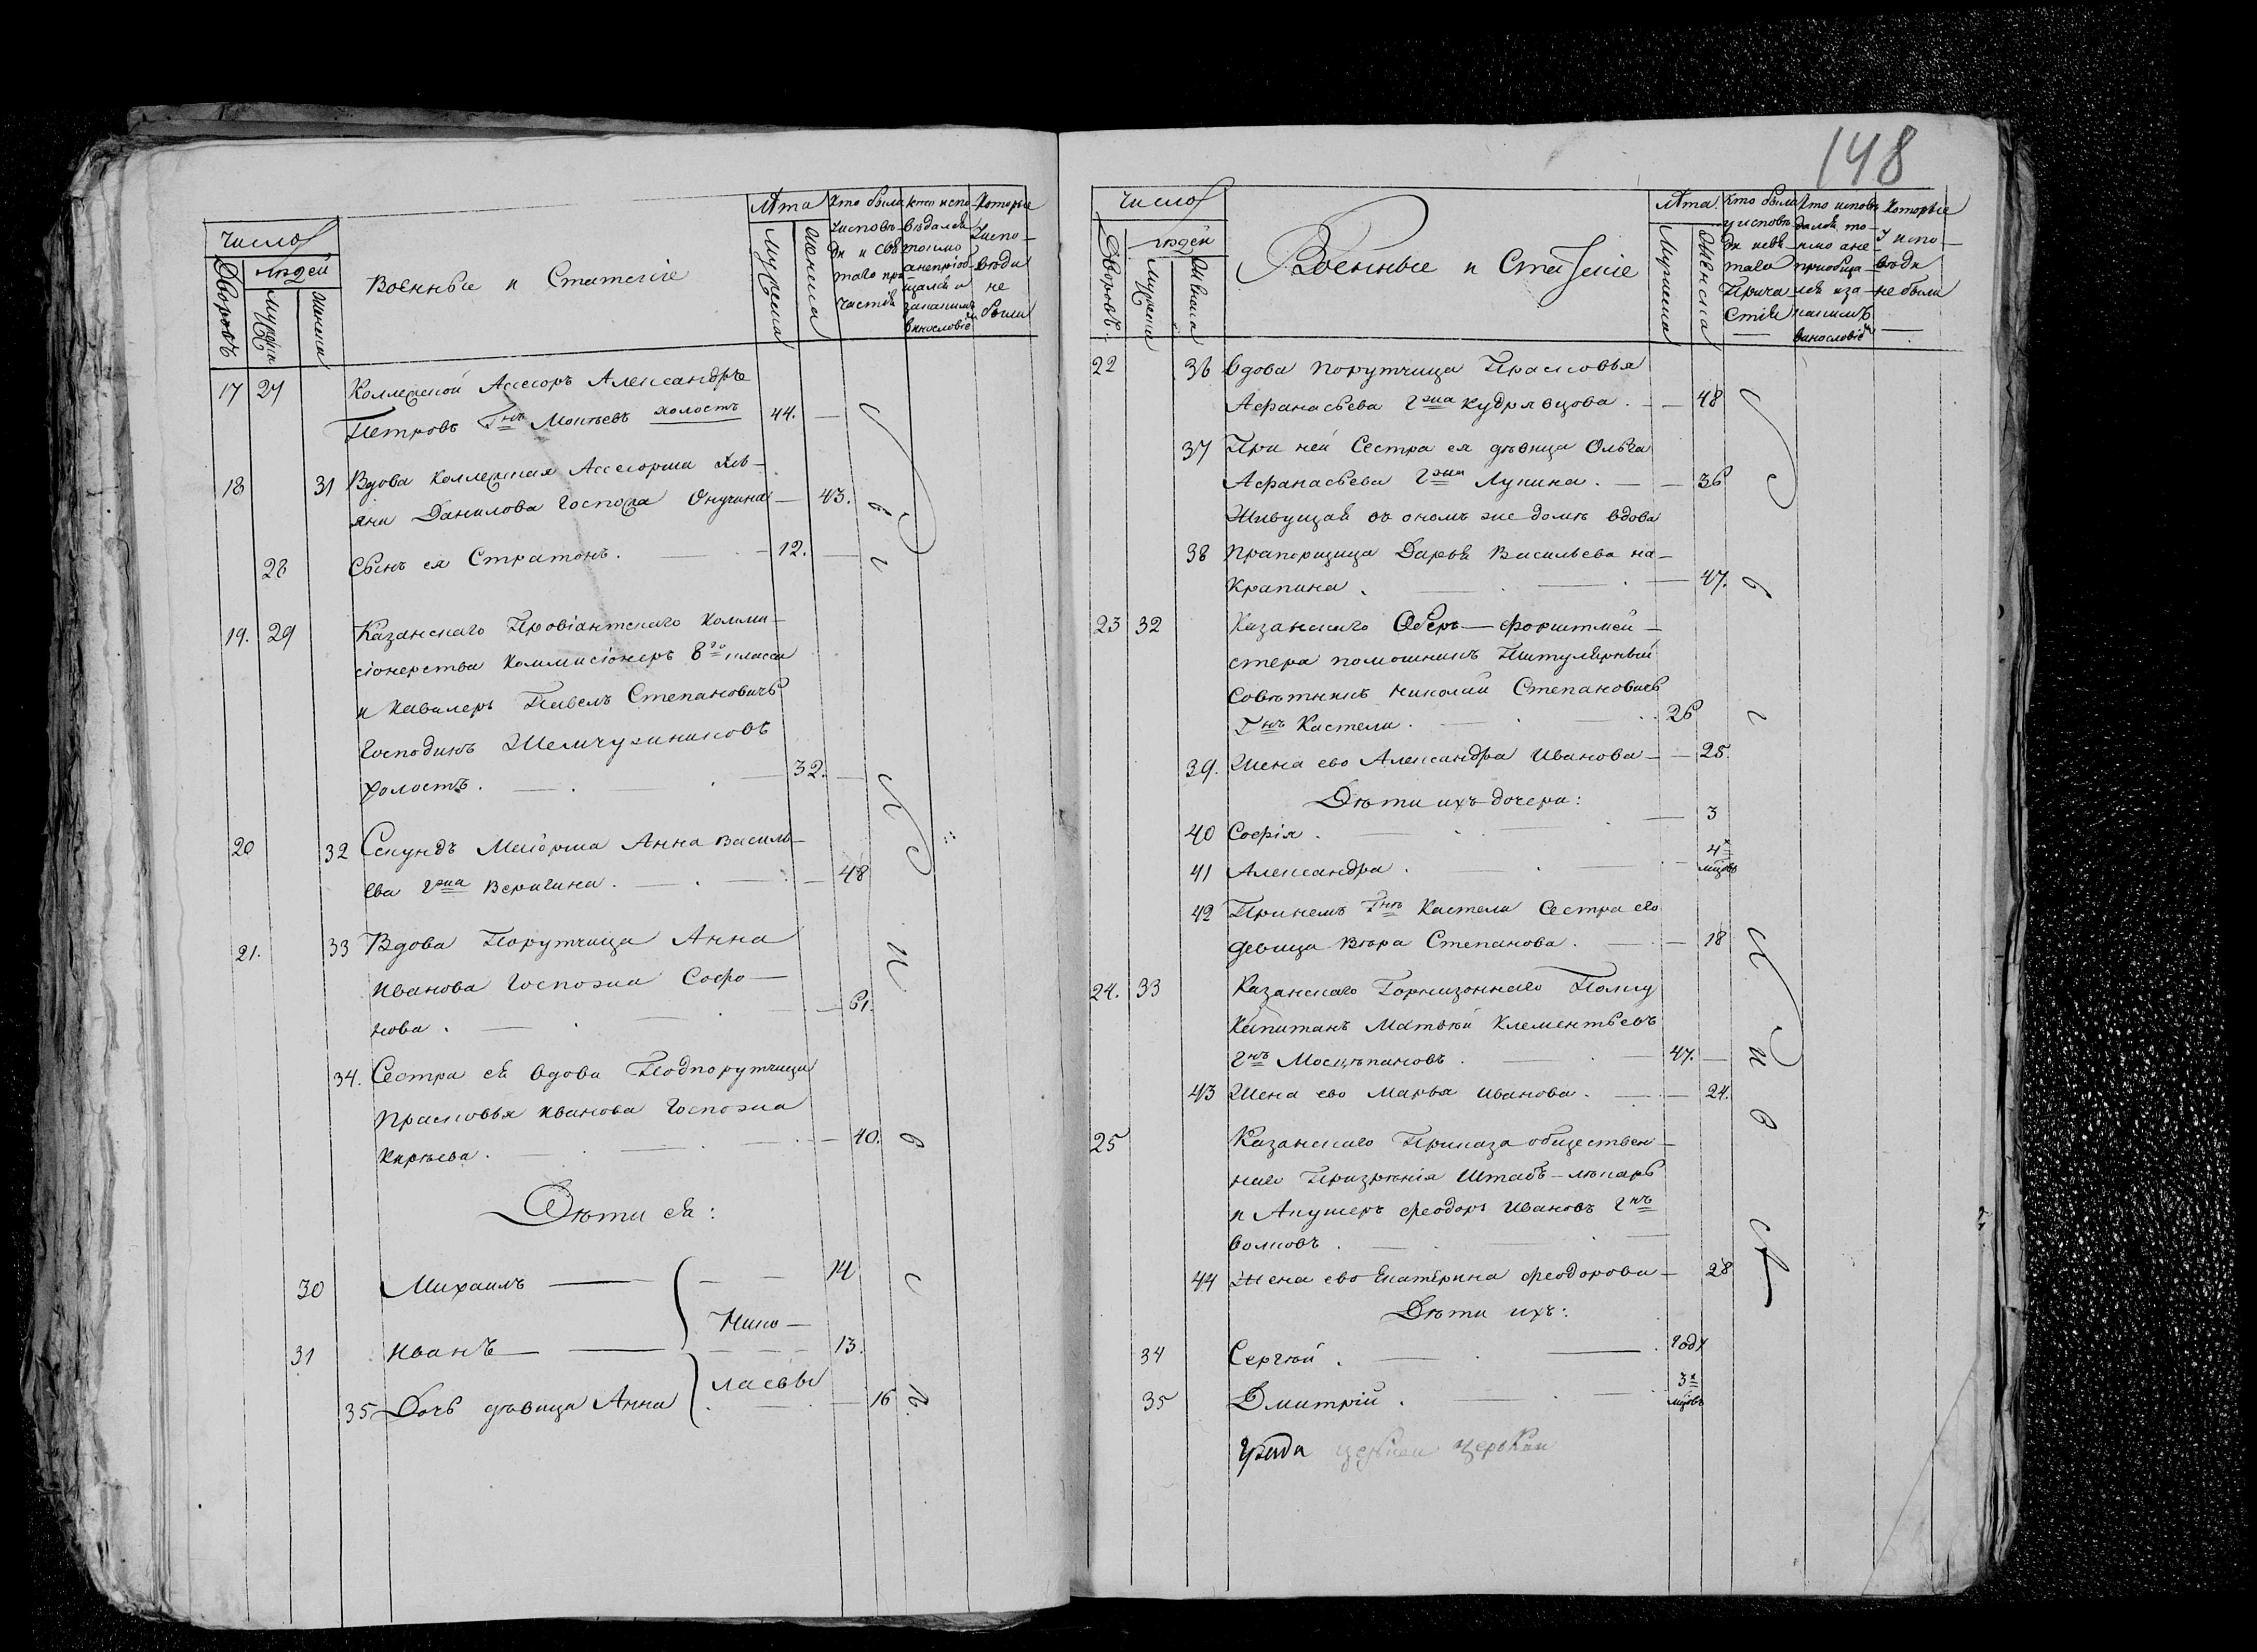 Число
Дворовъ
людей
мужеска
женска
Военные и Статскіе
Лѣта
мужеска
женска
Кто были
у исповѣ-
ди и свя
таго при
частія
Кто испо-
вѣдался
токмо
а непріоб-
щался и
за какимъ
винословіемъ
Которые
у испо-
вѣди
не
были
17 27 Коллежской Ассесоръ Александръ
Петровъ Гнъ Моисеевъ холостъ 44.
18 31 Вдова Коллежская Ассесорша
Данилова Госпожа Онучина 43.
28 Сынъ ея Стратонъ. 12.
19. 29 Казанскаго Провіантскаго Комми-
сіонерства Коммисіонеръ 8го класса
и Кавалеръ Павелъ Степановичъ
Господинъ Жемчужниковъ
холостъ. 32.
20 32 Секундъ Маіорша Анна Василь-
ева Гжа Веригина. 48
21. 33 Вдова Порутчица Анна
Иванова Госпожа Софо-
нова. 61.
34. Сестра ея вдова Подпорутчица
Прасковья Иванова Госпожа
Киреева. 40.
Дѣти ея:
30 Михаилъ 14
Нико-
31 Иванъ 13.
лаевы
35 Дочь дѣвица Анна 16
148
Число
Дворовъ
людей
мужеска
женска
Военные и Статскіе
Лѣта
мужеска
женска
Кто были
у исповѣ
ди и свя
таго
Прича
стія
Кто исповѣ
дался то-
кмо а не
пріобща
лся и за
какимъ
винословіемъ
Которые
у испо-
вѣди
не были
22 36 Вдова порутчица Прасковья
Афанасьева Гжа Кудрявцова. 48
37 При ней Сестра ея дѣвица Ольга
Афанасьева Гжа Лупина. 36
Живущая въ ономъ же домѣ вдова
38 Прапорщица Дарья Васильева на-
крапина. 47.
23 32 Казанскаго Оберъ-форштмей-
стера помошникъ Титулярный
Совѣтникъ Николай Степановичь
Гнъ Кастели. 26
39. Жена ево Александра Иванова 25.
Дѣти ихъ дочери:
40 Софія. 3
41 Александра. 4х мцовъ
42 При немъ Гнѣ Кастели Сестра его
девица Вѣра Степанова. 18
24. 33 Казанскаго Гарнизоннаго Полку
Капитанъ Матвѣй Клементьевъ
Гнъ Мосцѣпановъ. 47.
43 Жена ево Марья Иванова. 24.
25 Казанскаго Приказа обществен-
наго Призрѣнія Штабъ-лѣкарь
и Акушеръ Феодоръ Ивановъ Гнъ
Волковъ.
44 Жена ево Екатерина Феодорова 28
Дѣти ихъ:
34 Сергѣй. году
35 Дмитрій. 3х мцовъ
Града церкви